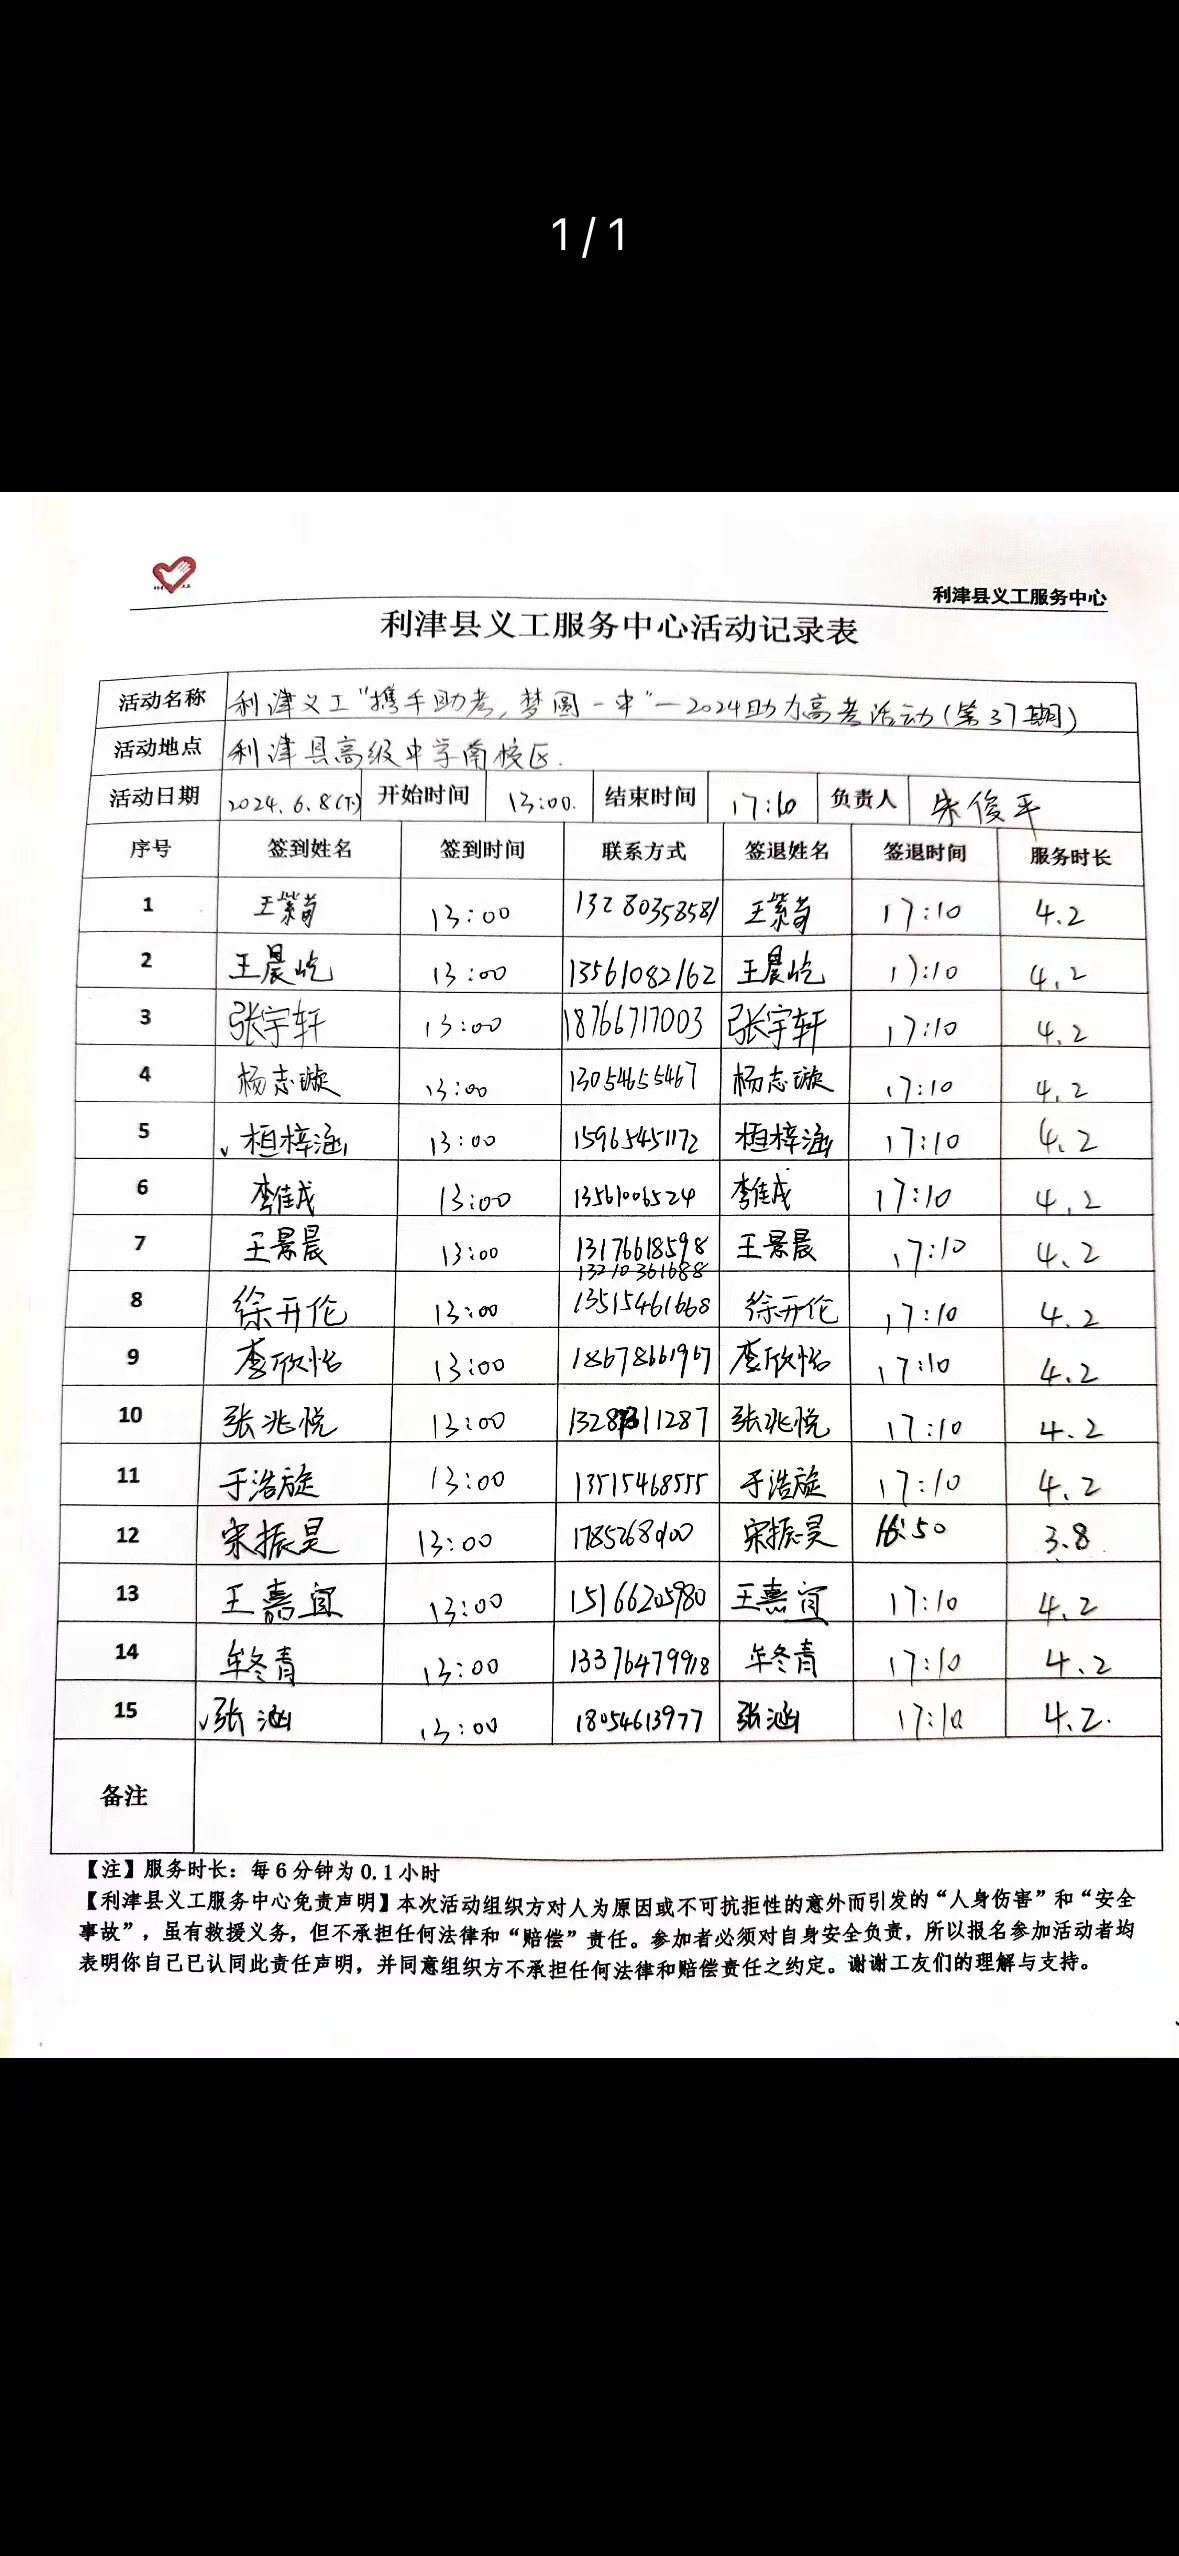 1/1
利津县义工服务中心
利津县义工服务中心活动记录表
活动名称 利津义工“携手助考,梦圆一中”—2024助力高考活动(第37期)
活动地点 利津县高级中学南校区.
活动日期 2024.6.8(下) 开始时间 13:00. 结束时间 17:10 负责人 朱俊平
序号 签到姓名 签到时间 联系方式 签退姓名 签退时间 服务时长
1 王 13:00 13280358581 王 17:10 4.2
2 王晨屹 13:00 13561082162 王晨屹 17:10 4.2
3 张宇轩 13:00 18766717003 张宇轩 17:10 4.2
4 杨志璇 13:00 13054655467 杨志璇 17:10 4.2
5 桓梓涵 13:00 15965451172 桓梓涵 17:10 4.2
6 李佳成 13:00 13561006524 李佳成 17:10 4.2
7 王景晨 13:00 13176618598 王景晨 17:10 4.2
13210361688
8 徐开伦 13:00 13515461668 徐开伦 17:10 4.2
9 李欣怡 13:00 18678661967 李欣怡 17:10 4.2
10 张兆悦 13:00 张兆悦 17:10 4.2
11 于浩旋 13:00 13515468555 于浩旋 17:10 4.2
12 宋振昊 13:00 宋振昊 16:50 3.8
13 王嘉宜 13:00 15166205980 王嘉宜 17:10 4.2
14 牟冬青 13:00 13376479918 牟冬青 17:10 4.2
15 张涵 13:00 18054613977 张涵 17:10 4.2.
备注
【注】服务时长：每6分钟为0.1小时
【利津县义工服务中心免责声明】本次活动组织方对人为原因或不可抗拒性的意外而引发的“人身伤害”和“安全
事故”，虽有救援义务，但不承担任何法律和“赔偿”责任。参加者必须对自身安全负责，所以报名参加活动者均
表明你自己已认同此责任声明，并同意组织方不承担任何法律和赔偿责任之约定。谢谢工友们的理解与支持。